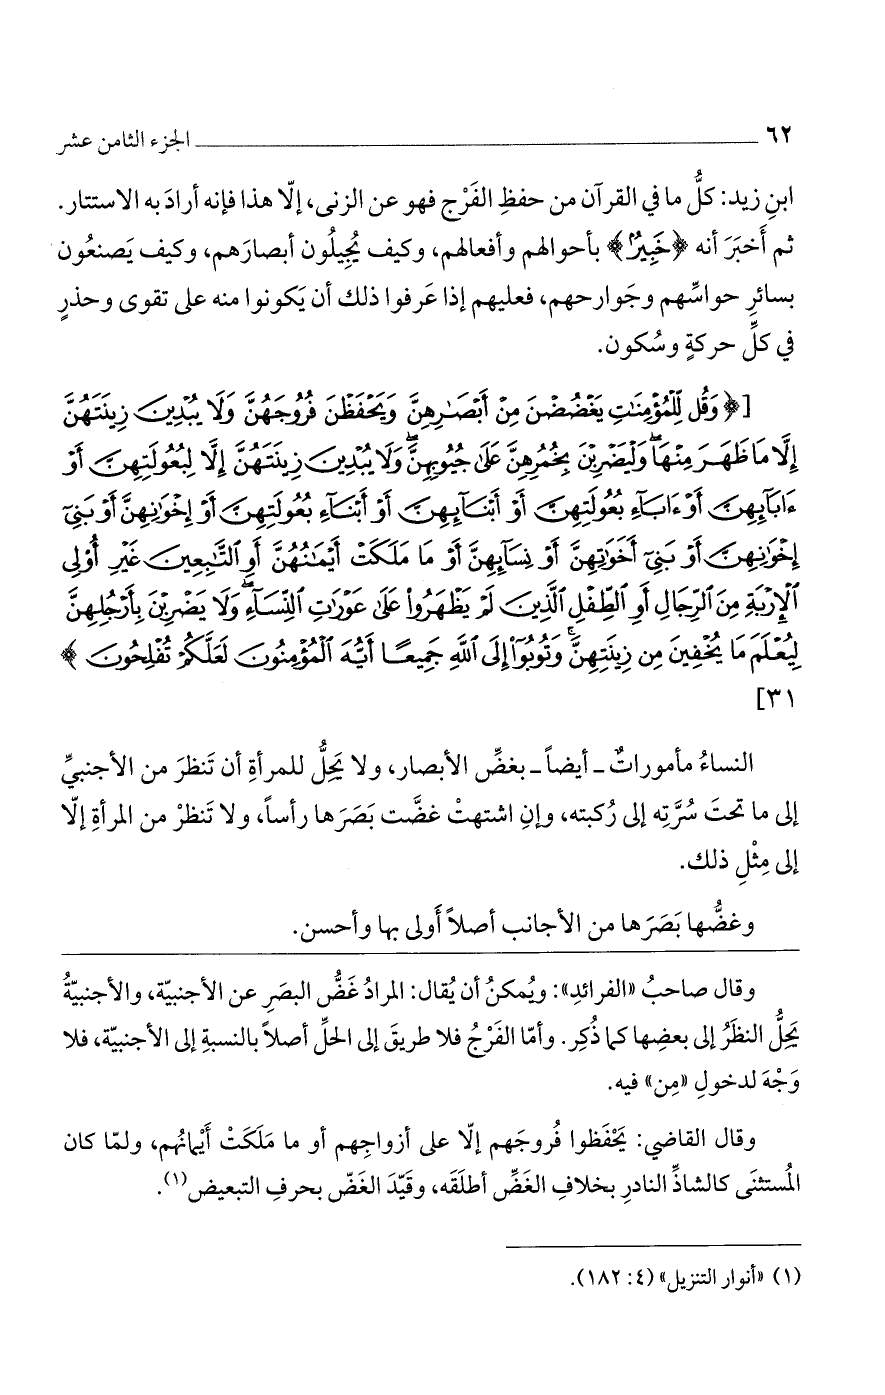 ٦٢ الجزء الثامن عشر
ابنِ زيد: كلُّ ما في القرآن من حفظِ الفَرْج فهو عن الزنى، إلّا هذا فإنه أرادَ به الاستتار.
ثم أَخبَرَ أنه ﴿خَبِيرٌ﴾ بأحوالهم وأفعالهم، وكيف يُجيلُون أبصارَهم، وكيف يَصنعُون
بسائرِ حواسِّهم وجَوارحهم، فعليهم إذا عَرفوا ذلك أن يَكونوا منه على تقوى وحذرٍ
في كلِّ حركةٍ وسُكون.
[﴿وَقُل لِّلْمُؤْمِنَٰتِ يَغْضُضْنَ مِنْ أَبْصَٰرِهِنَّ وَيَحْفَظْنَ فُرُوجَهُنَّ وَلَا يُبْدِينَ زِينَتَهُنَّ
إِلَّا مَا ظَهَرَ مِنْهَا ۖ وَلْيَضْرِبْنَ بِخُمُرِهِنَّ عَلَىٰ جُيُوبِهِنَّ ۖ وَلَا يُبْدِينَ زِينَتَهُنَّ إِلَّا لِبُعُولَتِهِنَّ أَوْ
ءَابَآئِهِنَّ أَوْ ءَابَآءِ بُعُولَتِهِنَّ أَوْ أَبْنَآئِهِنَّ أَوْ أَبْنَآءِ بُعُولَتِهِنَّ أَوْ إِخْوَٰنِهِنَّ أَوْ بَنِىٓ
إِخْوَٰنِهِنَّ أَوْ بَنِىٓ أَخَوَٰتِهِنَّ أَوْ نِسَآئِهِنَّ أَوْ مَا مَلَكَتْ أَيْمَٰنُهُنَّ أَوِ ٱلتَّٰبِعِينَ غَيْرِ أُو۟لِى
ٱلْإِرْبَةِ مِنَ ٱلرِّجَالِ أَوِ ٱلطِّفْلِ ٱلَّذِينَ لَمْ يَظْهَرُوا۟ عَلَىٰ عَوْرَٰتِ ٱلنِّسَآءِ ۖ وَلَا يَضْرِبْنَ بِأَرْجُلِهِنَّ
لِيُعْلَمَ مَا يُخْفِينَ مِن زِينَتِهِنَّ ۚ وَتُوبُوٓا۟ إِلَى ٱللَّهِ جَمِيعًا أَيُّهَ ٱلْمُؤْمِنُونَ لَعَلَّكُمْ تُفْلِحُونَ﴾
٣١]
النساءُ مأموراتٌ ـ أيضاً ـ بغضِّ الأبصار، ولا يَحِلُّ للمرأةِ أن تَنظرَ من الأجنبيِّ
إلى ما تحتَ سُرَّتِه إلى رُكبته، وإنِ اشتهتْ غضَّت بَصَرَها رأساً، ولا تَنظرْ من المرأةِ إلّا
إلى مِثْلِ ذلك.
وغضُّها بَصَرَها من الأجانب أصلاً أَولى بها وأحسن.
وقال صاحبُ «الفرائدِ»: ويُمكنُ أن يُقال: المرادُ غَضُّ البصَرِ عن الأجنبيّة، والأجنبيّةُ
يَحِلُّ النظَرُ إلى بعضِها كما ذُكِر. وأمّا الفَرْجُ فلا طريقَ إلى الحلِّ أصلاً بالنسبةِ إلى الأجنبيّة، فلا
وَجْهَ لدخولِ «مِن» فيه.
وقال القاضي: يَحْفَظوا فُروجَهم إلّا على أزواجِهم أو ما مَلَكَتْ أَيْمانُهم، ولمّا كان
المُستثنَى كالشاذِّ النادرِ بخلافِ الغَضِّ أطلَقَه، وقَيّدَ الغَضّ بحرفِ التبعيض(١).
(١) «أنوار التنزيل» (٤: ١٨٢).